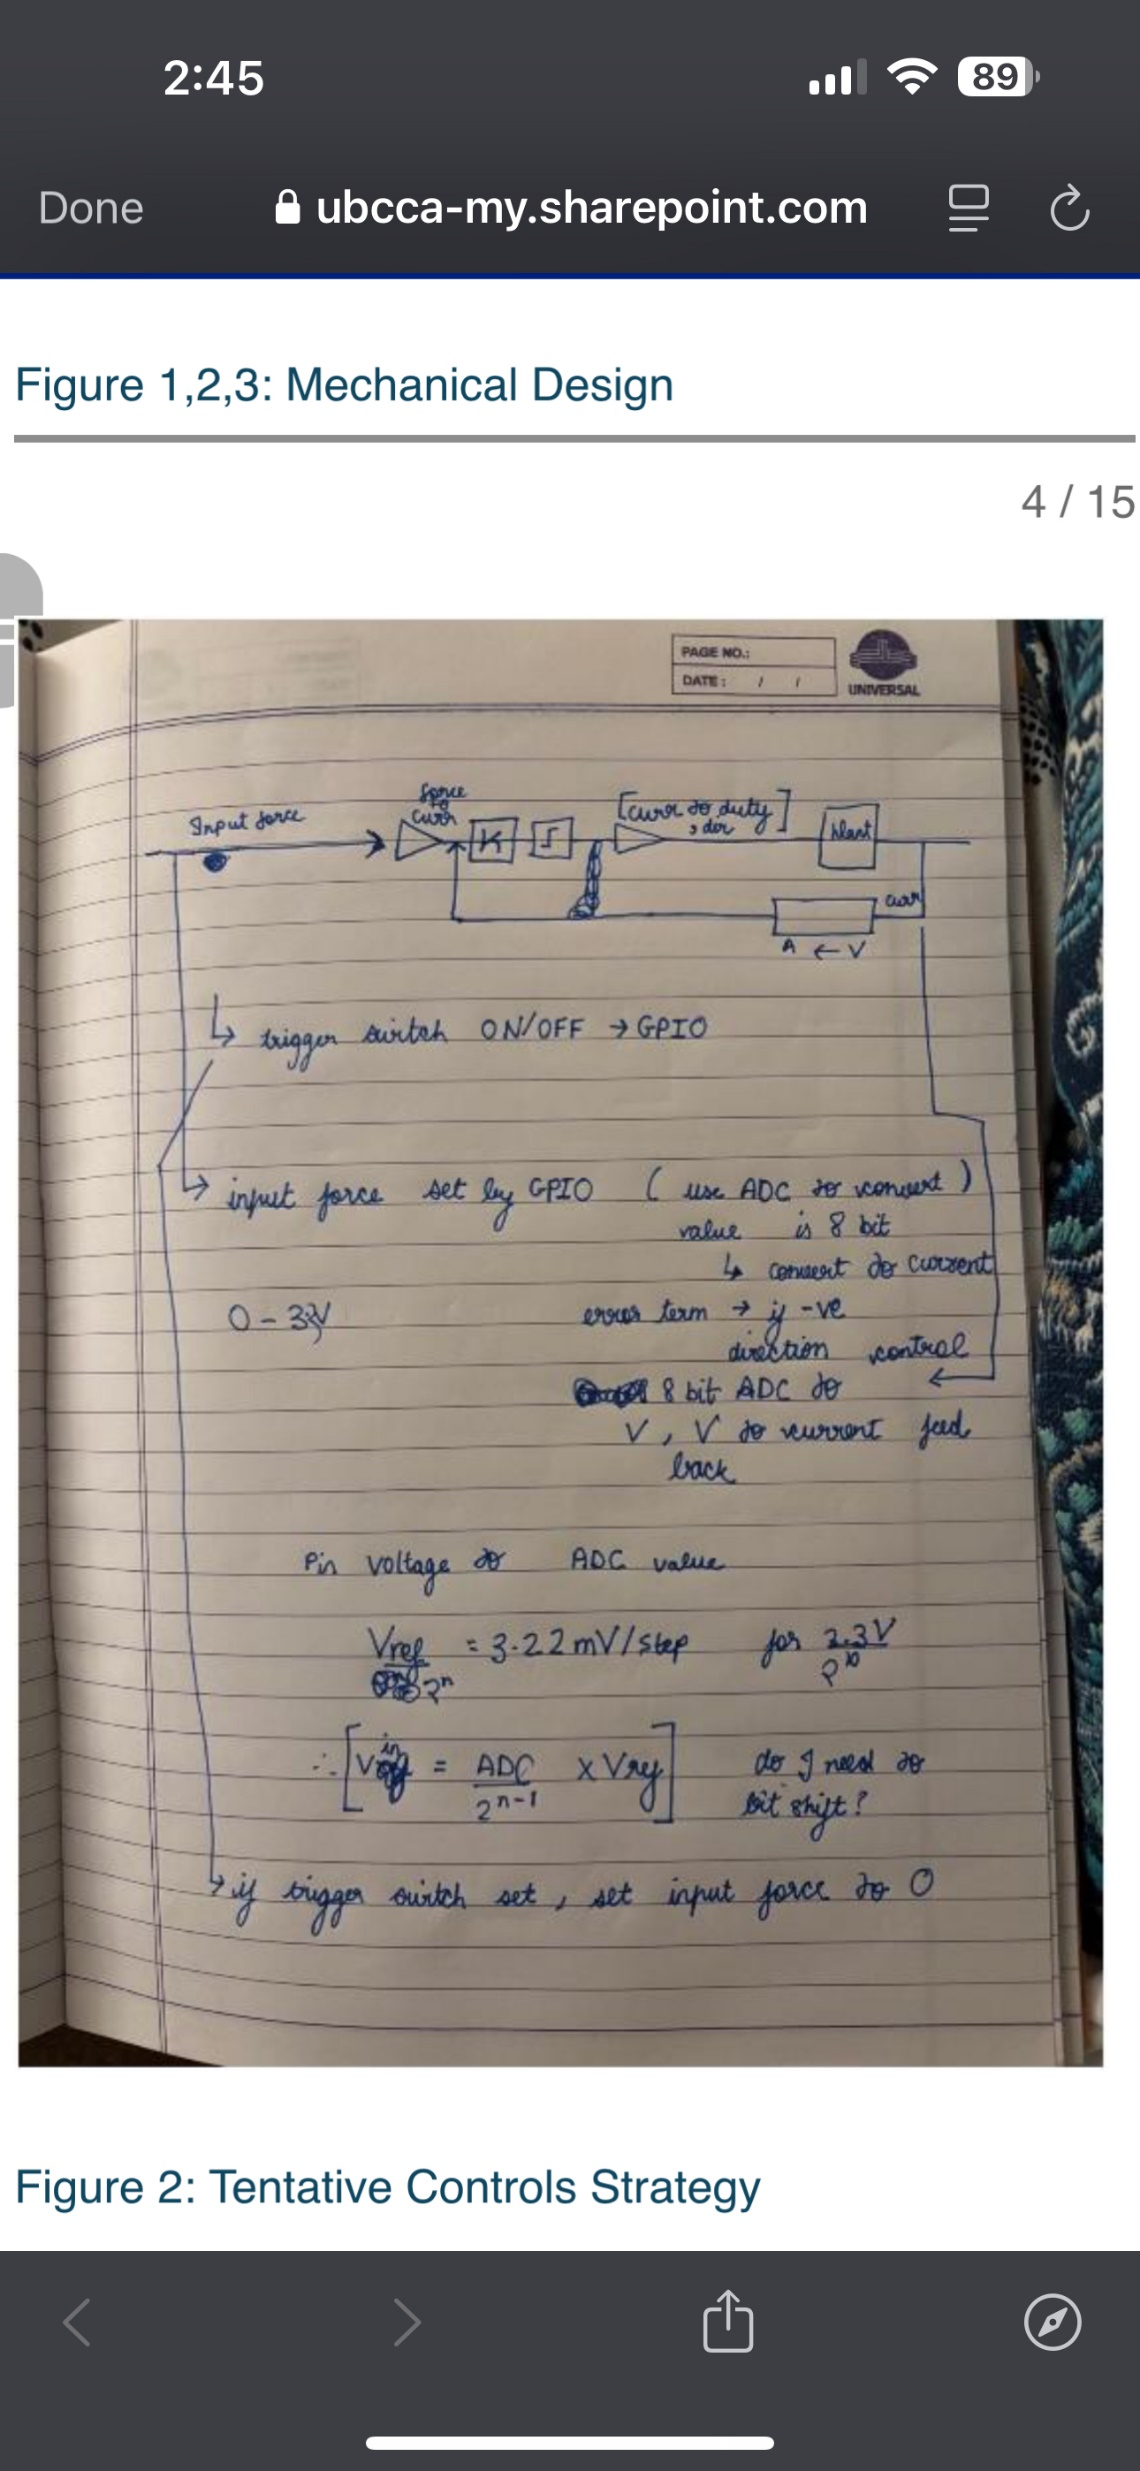 2:45
89
Done
ubcca-my.sharepoint.com
Figure 1,2,3: Mechanical Design
4 / 15
PAGE NO.:
DATE: / /
UNIVERSAL
Input force
force
to
curr
K
∫
[curr to duty]
, dir
plant
curr
A ← V
↳ trigger switch ON/OFF → GPIO
↳ input force set by GPIO ( use ADC to convert )
value is 8 bit
↳ convert to current
0 - 3V
error term → if -ve
direction control
8 bit ADC to
V , V to current feed
back
Pin voltage to ADC value
Vref = 3.22 mV/step for 3.3V
2ⁿ 2¹⁰
∴ [Vin = ADC x Vref] do I need to
2ⁿ⁻¹ bit shift?
↳ if trigger switch set , set input force to 0
Figure 2: Tentative Controls Strategy